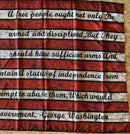 A free people ought not only Be
armed and disciplined, But they
should have sufficient arms And
ntain A status of independence from
ttempt to abuse them, Which would
overnment. -George Washington